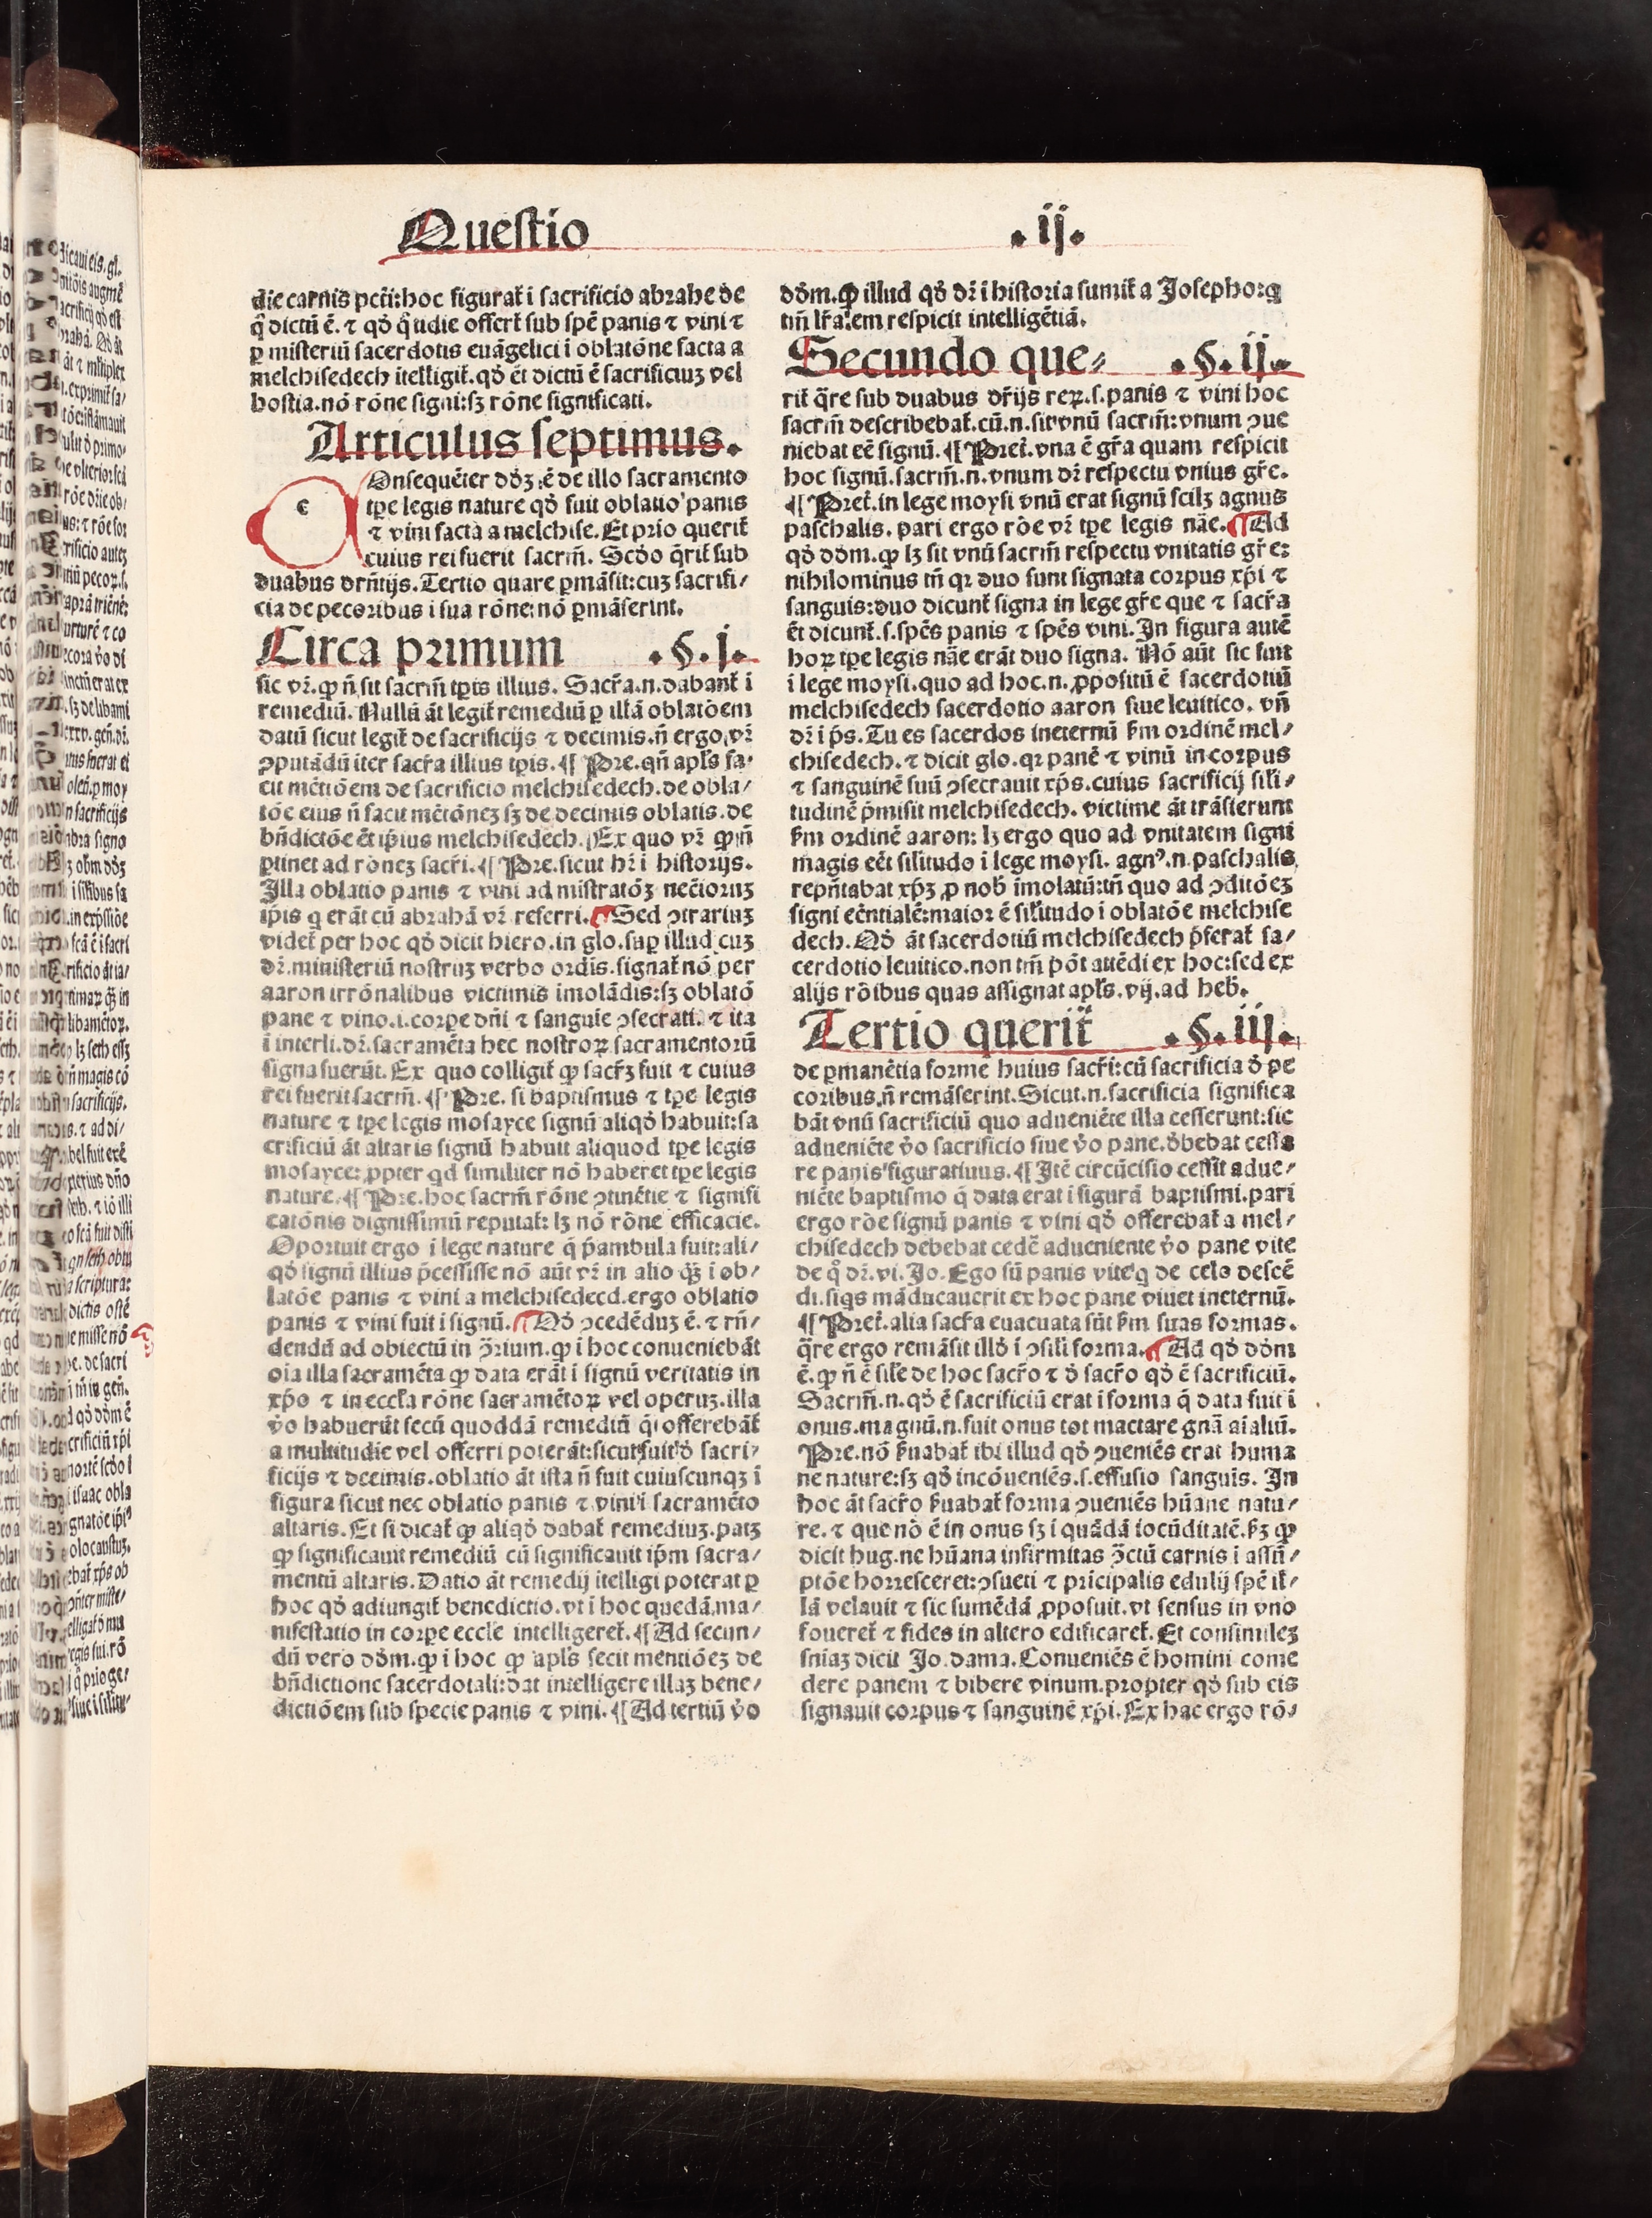 Questio .ij.
die carnis pcti:hoc figurat̄ i sacrificio abrahe de
q̄ dictū ē. ⁊ qđ q̄tidie offert̄ sub spē panis ⁊ vini ⁊
ꝑ misteriū sacerdotis euāgelici i oblatōne facta a
melchisedech itelligit̄. qđ ēt dictū ē sacrificiuꝫ vel
hostia.nō rōne signi:sꝫ rōne significati.
Articulus septimus.
Onsequēter dđꝫ:ē de illo sacramento
tꝑe legis nature qđ fuit oblatio panis
⁊ vini facta a melchise. Et prīo querit̄
cuius rei fuerit sacrm̄. Scđo q̄rit̄ sub
duabus drn̄tijs. Tertio quare ꝑmāsit:cuꝫ sacrifi/
cia de pecoribus i sua rōne: nō ꝑmāserint.
Circa primum .§.j.
sic vr̄. ꝙ n̄ sit sacrm̄ tꝑis illius. Sacr̄a.n.dabant̄ i
remediū. Nullū āt legit̄ remediū ꝑ illā oblatōem
datū sicut legit̄ de sacrificijs ⁊ decimis. n̄ ergo vr̄
ꝯputādū iter sacr̄a illius tꝑis. ¶ Pre. qn̄ apl's fa/
cit mētiōem de sacrificio melchisedech. de obla/
tōe eius n̄ facit mētōneꝫ sꝫ de decimis oblatis. de
bn̄dictōe ēt ipsius melchisedech. Ex quo vr̄ ꝙ n̄
ꝑtinet ad rōneꝫ sacr̄i. ¶ Pre. sicut hr̄ i historijs.
Illa oblatio panis ⁊ vini ad mistratōꝫ nec̄ioruꝫ
ip̄is q erāt cū abrahā vr̄ referri. ¶ Sed ꝯtrariuꝫ
videt̄ per hoc qđ dicit hiero. in glo. suꝑ illud cuꝫ
dr̄. ministeriū nostruꝫ verbo ordis. signat̄ nō per
aaron irrōnalibus victimis imolādis: sꝫ oblatō
pane ⁊ vino.i.corꝑe dn̄i ⁊ sanguie ꝯsecrati. ⁊ ita
i interli. dr̄. sacramēta hec nostroꝝ sacramentorū
signa fuerūt. Ex quo colligit̄ ꝙ sacr̄ꝫ fuit ⁊ cuius
rei fuerit sacrm̄. ¶ Pre. si baptismus ⁊ tꝑe legis
nature ⁊ tꝑe legis mosayce signū aliqđ habuit: sa
crificiū āt altaris signū habuit aliquod tꝑe legis
mosayce: ꝓpter qd similiter nō haberet tꝑe legis
nature. ¶ Pre. hoc sacrm̄ rōne ꝯtinētie ⁊ signifi
catōnis dignissimū reputat̄: lꝫ nō rōne efficacie.
Oportuit ergo i lege nature q̄ p̄ambula fuit: ali/
qđ signū illius p̄cessisse nō aūt vr̄ in alio q̄ꝫ i ob/
latōe panis ⁊ vini a melchisedecd. ergo oblatio
panis ⁊ vini fuit i signū. ¶ Qđ ꝯcedēduꝫ ē. ⁊ rn̄/
dendū ad obiectū in ꝯ̄rium. ꝙ i hoc conueniebāt
oīa illa sacramēta ꝙ data erāt i signū veritatis in
xp̄o ⁊ in eccl'a rōne sacramētoꝝ vel operuꝫ. illa
v̊o habuerūt secū quoddā remediū q̄i offerebāt̄
a multitudie vel offerri poterāt: sicut fuit đ sacri/
ficijs ⁊ decimis. oblatio āt ista n̄ fuit cuiuscunqꝫ i
figura sicut nec oblatio panis ⁊ vini i sacramēto
altaris. Et si dicat̄ ꝙ aliqđ dabat̄ remediuꝫ. patꝫ
ꝙ significauit remediū cū significauit ip̄m sacra/
mentū altaris. Datio āt remedij itelligi poterat ꝑ
hoc qđ adiungit̄ benedictio. vt i hoc quedā ma/
nifestatio in corꝑe eccl'e intelligeret̄. ¶ Ad secun/
dū vero dđm. ꝙ i hoc ꝙ apl's fecit mentiōeꝫ de
bn̄dictione sacerdotali: dat intelligere illaꝫ bene/
dictiōem sub specie panis ⁊ vini. ¶ Ad tertiū v̊o
dđm. ꝙ illud qđ dr̄ i historia sumit̄ a Josephorq
tm̄ lr̄alem respicit intelligētiā.
Secundo que/ .§.ij.
rit̄ q̄re sub duabus dr̄ijs reꝝ.s.panis ⁊ vini hoc
sacrm̄ describebat̄. cū.n.sit vnū sacrm̄: vnum ꝯue
niebat eē signū. ¶ Pret̄. vna ē gr̄a quam respicit
hoc signū. sacrm̄.n. vnum dr̄ respectu vnius gr̄e.
¶ Pret̄. in lege moysi vnū erat signū scilꝫ agnus
paschalis. pari ergo rōe vr̄ tꝑe legis nāe. ¶ Ad
qđ dđm. ꝙ lꝫ sit vnū sacrm̄ respectu vnitatis gr̄e:
nihilominus tn̄ qr duo sunt signata corpus xp̄i ⁊
sanguis: duo dicunt̄ signa in lege gr̄e que ⁊ sacr̄a
ēt dicunt̄.s.spēs panis ⁊ spēs vini. In figura autē
hoꝝ tꝑe legis nāe erāt duo signa. Nō aūt sic sunt
i lege moysi. quo ad hoc.n. ꝓpositū ē sacerdotiū
melchisedech sacerdotio aaron siue leuitico. vn̄
dr̄ i p̄s. Tu es sacerdos ineternū ẜm ordinē mel/
chisedech. ⁊ dicit glo. qr panē ⁊ vinū in corpus
⁊ sanguinē suū ꝯsecrauit xp̄s. cuius sacrificij sil'i/
tudinē p̄misit melchisedech. victime āt trāsierunt
ẜm ordinē aaron: lꝫ ergo quo ad vnitatem signi
magis eēt sil'itudo i lege moysi. agnꝰ.n.paschalis
repn̄tabat xp̄ꝫ ꝓ nob̄ imolatū: tn̄ quo ad ꝯditōeꝫ
signi eēntialē: maior ē sil'itudo i oblatōe melchise
dech. Qđ āt sacerdotiū melchisedech p̄ferat̄ sa/
cerdotio leuitico. non tm̄ pōt attēdi ex hoc: sed ex
alijs rōibus quas assignat apl's.vij.ad heb̄.
Tertio querit̄ .§.iij.
de ꝑmanētia forme huius sacr̄i: cū sacrificia đ pe
coribus. n̄ remāserint. Sicut.n.sacrificia significa
bāt vnū sacrificiū quo adueniēte illa cesserunt: sic
adueniēte v̊o sacrificio siue v̊o pane. đbebat cessa
re panis figuratiuus. ¶ Itē circūcisio cessit adue/
niēte baptismo q̄ data erat i figurā baptismi. pari
ergo rōe signū panis ⁊ vini qđ offerebat̄ a mel/
chisedech debebat cedē adueniente v̊o pane vite
de q̊ dr̄.vi.Jo. Ego sū panis vite q de celo descē
di. siqs māducauerit ex hoc pane viuet ineternū.
¶ Pret̄. alia sacr̄a euacuata sūt ẜm suas formas.
q̄re ergo remāsit illđ i ꝯsil'i forma. ¶ Ad qđ dđm
ē. ꝙ n̄ ē sil'e de hoc sacr̄o ⁊ đ sacr̄o qđ ē sacrificiū.
Sacrm̄.n.qđ ē sacrificiū erat i forma q̄ data fuit i
onus. magnū.n.fuit onus tot mactare gn̄a aīaliū.
Pre. nō ẜuabat̄ ibi illud qđ ꝯueniēs erat huma
ne nature: sꝫ qđ incōueniēs.s.effusio sanguis. In
hoc āt sacr̄o ẜuabat̄ forma ꝯueniēs hūane natu/
re. ⁊ que nō ē in onus sꝫ i quādā iocūditatē. ẜꝫ ꝙ
dicit hug. ne hūana infirmitas ꝯ̄ctū carnis i assū/
ptōe horresceret: ꝯsueti ⁊ pricipalis edulij spē il'/
lā velauit ⁊ sic sumēdā ꝓposuit. vt sensus in vno
foueret̄ ⁊ fides in altero edificaret̄. Et consimileꝫ
sn̄iaꝫ dicit Jo.dama. Conueniēs ē homini come
dere panem ⁊ bibere vinum. propter qđ sub eis
signauit corpus ⁊ sanguinē xp̄i. Ex hac ergo rō/